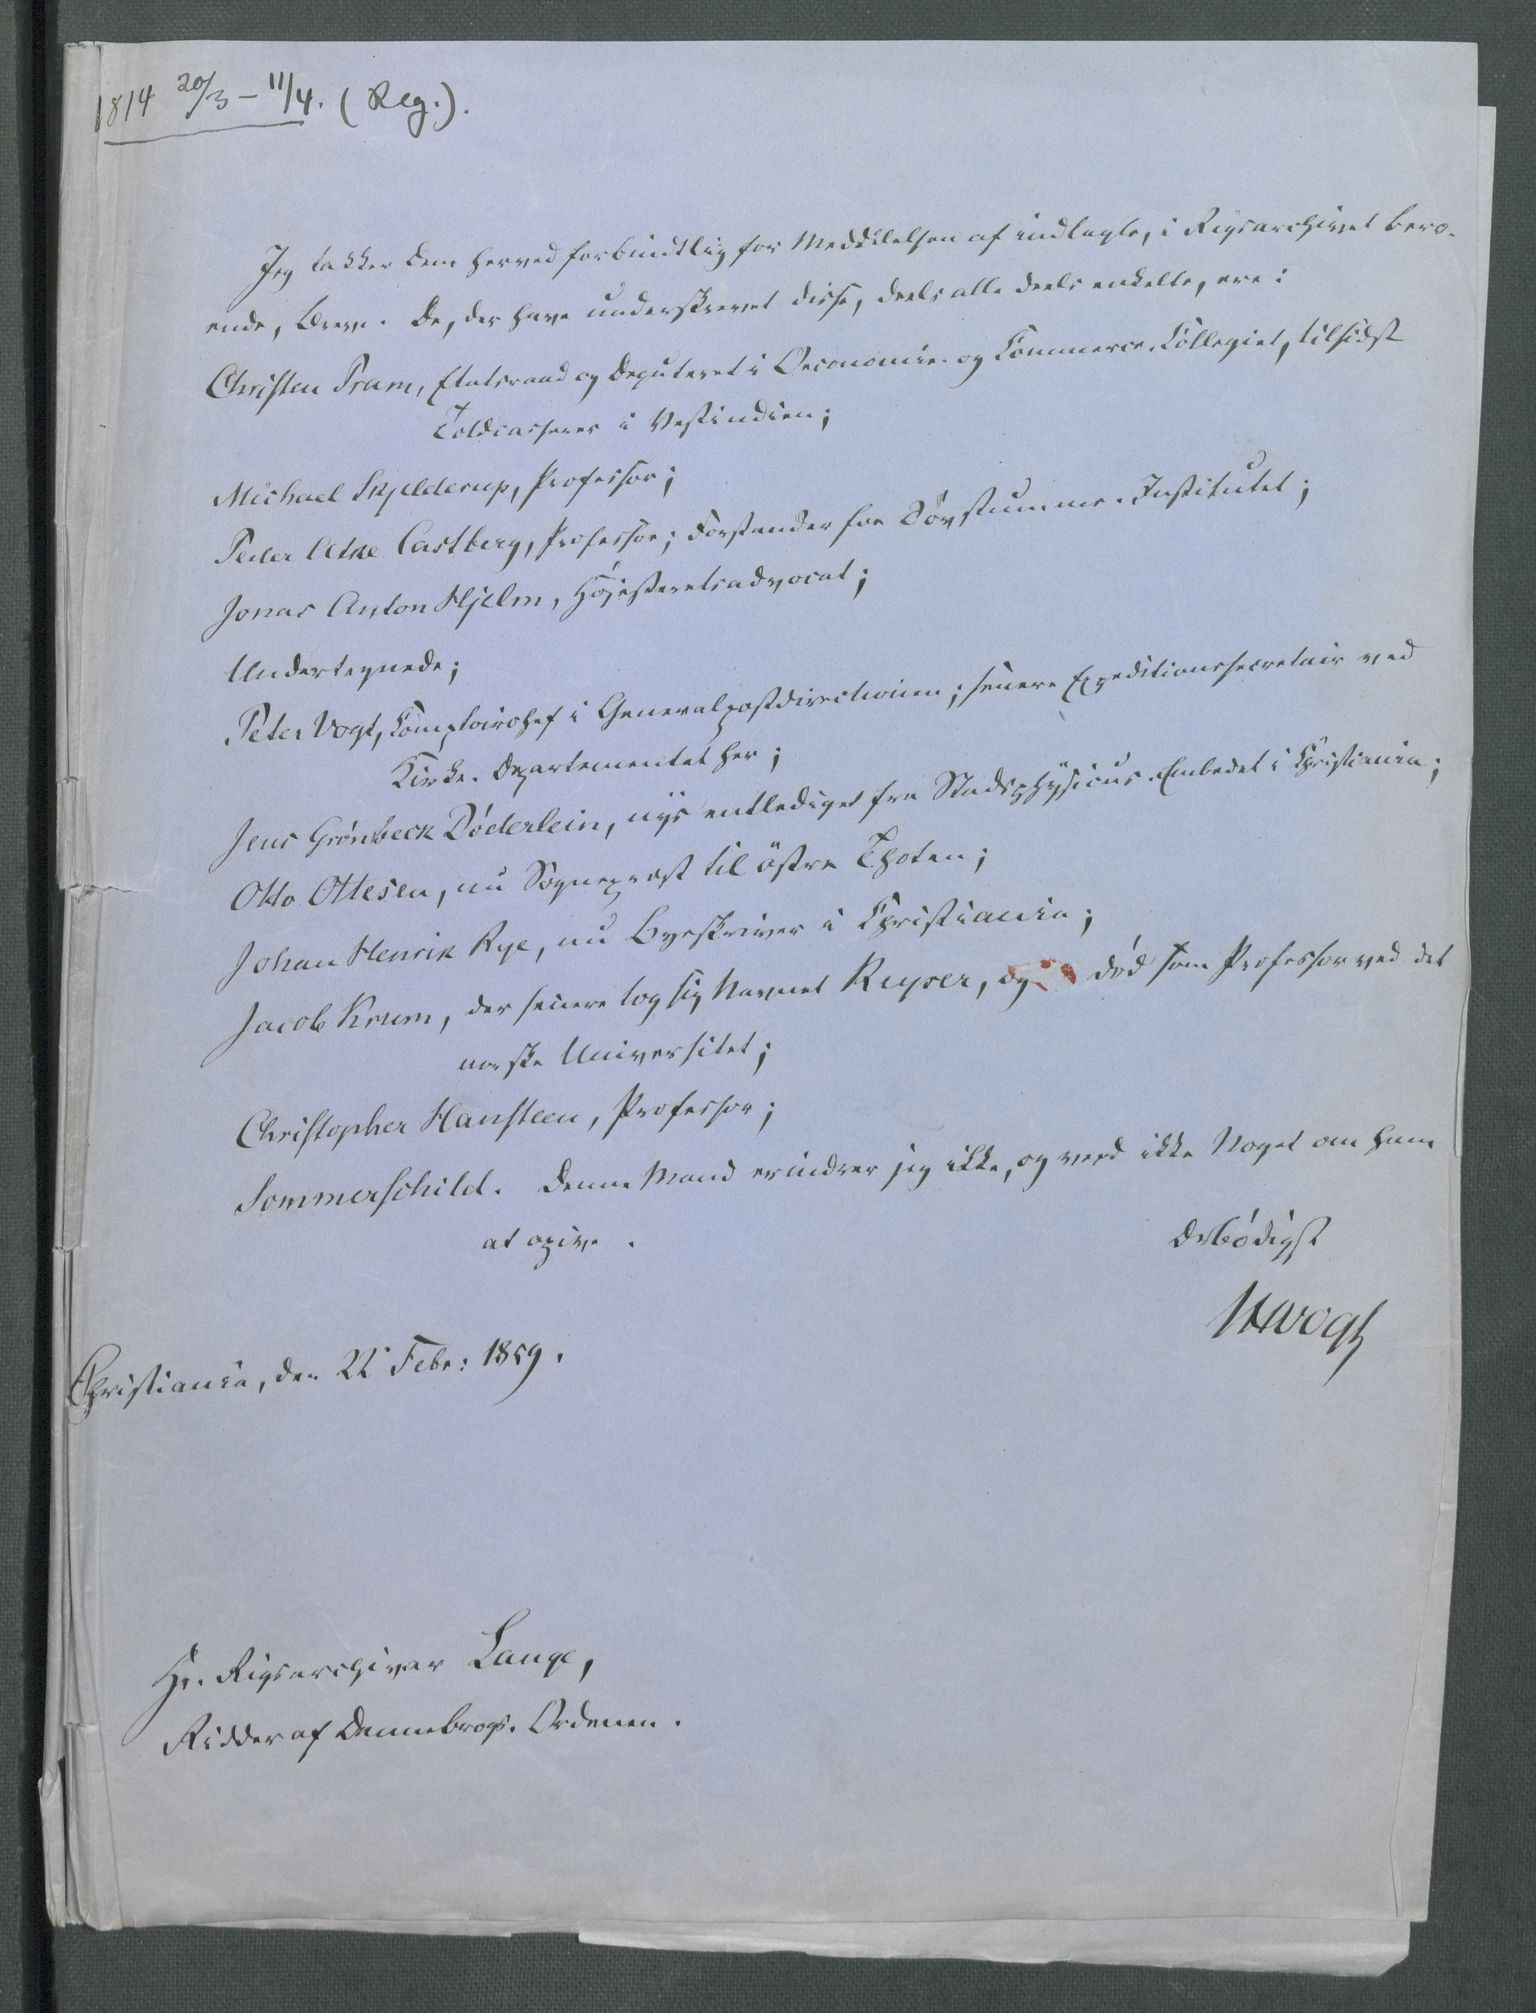 1814 20/3 – 11/4. (Reg.).
Jeg takker Dem herved forbindtlig for Meddelelsen af indlagte, i Rigsarchivet bero-
ende, Breve. De, der have underskrevet disse, deels alle deels enkelte, ere:
Christen Pram, Etatsraad og Deputeret i Oeconomie- og Commerce-Collegiet, tilsidst
Toldcasserer i Vestindien;
Michael Skjelderup, Professor;
Peder Atke Castberg, Professor; Forstander for Døvstumme-Institutet;
Jonas Anton Hjelm, Højesteretsadvocat;
Undertegnede;
Peter Vogt, Comptoirchef i Generalpostdirectionen; senere Expeditionssecretair ved
Kirke-Departementet her;
Jens Grønbeck Døderlein, nys entlediget fra Stadsphysicus-Embedet i Christiania;
Otto Ottesen, nu Sogneprest til østre Thoten;
Johan Henrik Rye, nu Byeskriver i Christiania;
Jacob Krum, der senere tog sig Navnet Keyser, og død som Professor ved det
norske Universitet;
Christopher Hansteen, Professor;
Sommerschild. Denne Mand erindrer jeg ikke, og veed ikke Noget om ham
at opgive.
Ærbødigst
Vogt
Christiania, den 22 Febr: 1859.
Hr. Rigsarchivar Lange,
Ridder af Dannebrogs-Ordenen.